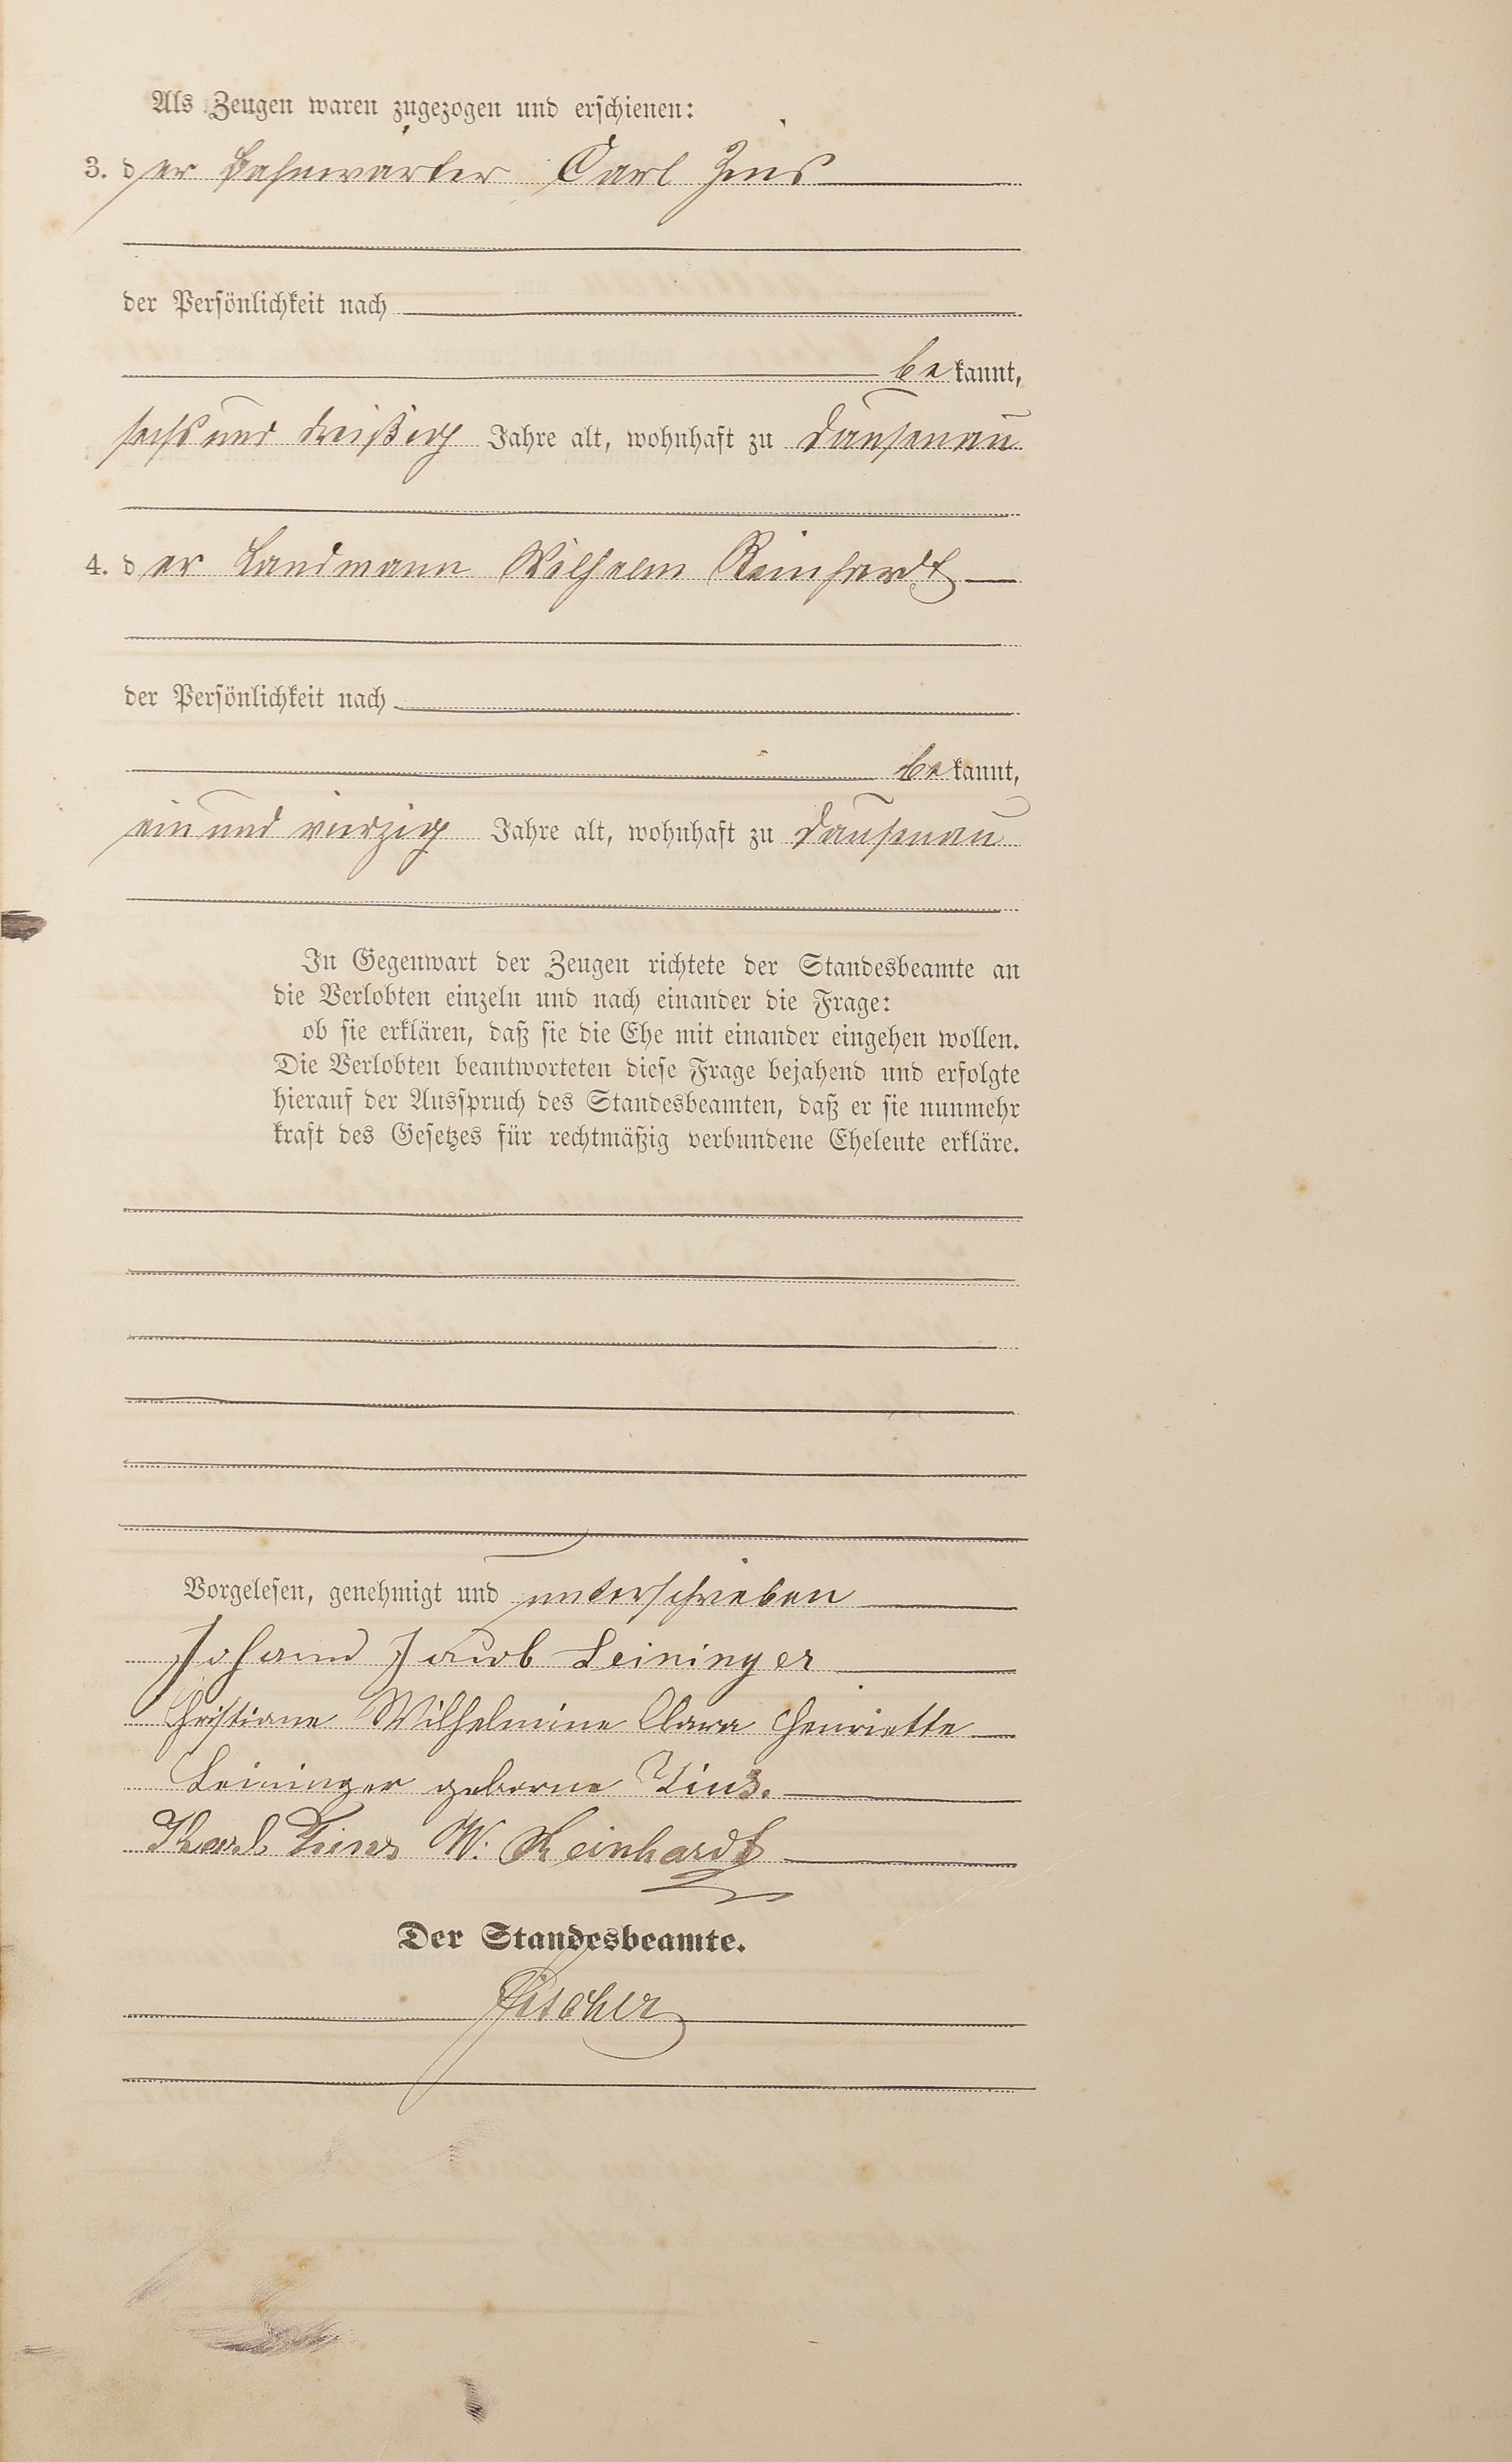 Als Zeugen waren zugezogen und erschienen:
3. der Bahnwärter Carl Zins
der Persönlichkeit nach
bekannt,
sechs und dreißig Jahre alt, wohnhaft zu Dausenau
4. der Landmann Wilhelm Reinhardt
der Persönlichkeit nach
bekannt,
ein und vierzig Jahre alt, wohnhaft zu Dausenau
In Gegenwart der Zeugen richtete der Standesbeamte an
die Verlobten einzeln und nach einander die Frage:
ob sie erklären, daß sie die Ehe mit einander eingehen wollen.
Die Verlobten beantworteten diese Frage bejahend und erfolgte
hierauf der Ausspruch des Standesbeamten, daß er sie nunmehr
kraft des Gesetzes für rechtmäßig verbundene Eheleute erkläre.
Vorgelesen, genehmigt und unterschrieben
Johann Jacob Leininger
Christiane Wilhelmine Clara Henriette
Leininger geborne
Karl W. Reinhardt
Der Standesbeamte.
Fischer